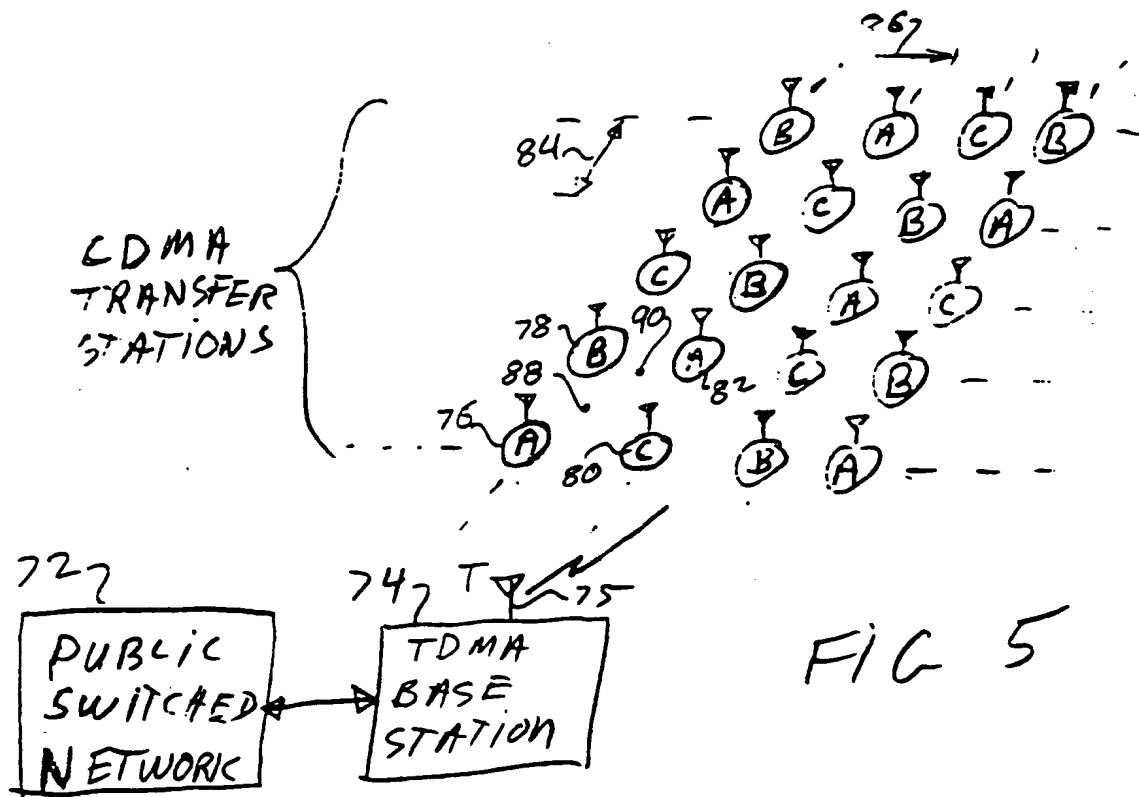 B A C B
84
A C B A
CDMA
TRANSFER
STATIONS
C B A C
78 90
B A C B
88 82
76
A C B A
80
72 74 T 75
PUBLIC
SWITCHED
NETWORK
TDMA
BASE
STATION
FIG 5